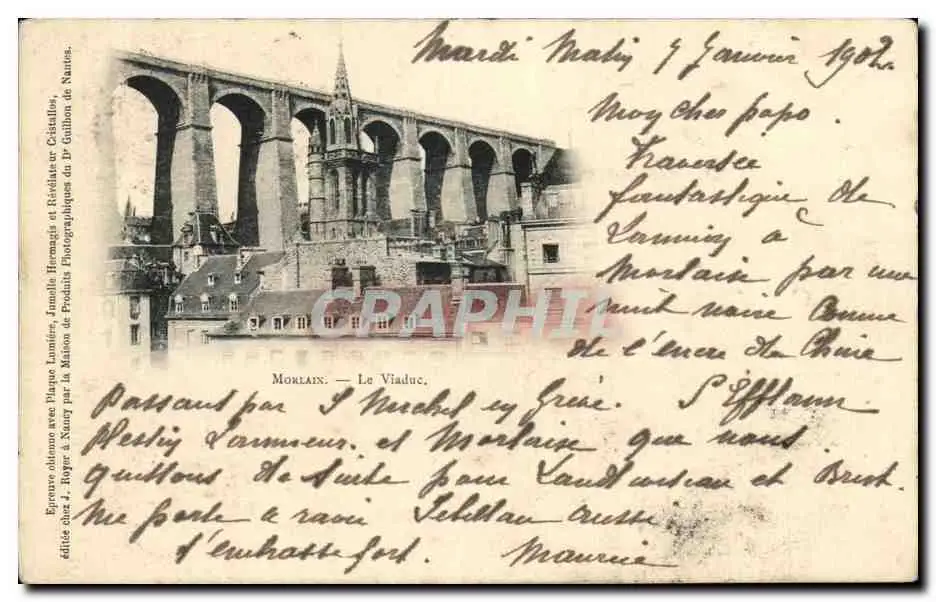 Mardi Matin 7 Janvier 1902
Mon cher papa.
Traversée
fantastique de
Lannion à
Morlaix par une
nuit noire comme
de l'encre de Chine
Epreuve obtenue avec Plaque Lumière, Jumelle Hermagis et Révélateur Cristallos,
éditée chez J. Royer à Nancy par la Maison de Produits Photographiques du Dr Guilhon de Nantes.
CARTE
CRAPHIL
Morlaix. — Le Viaduc.
Passant par S Michel en Grève. S Efflam
Plestin Lanmeur. et Morlaix que nous
quittons de suite pour Landivisiau et Brest.
Me porte à ravir aussi
t'embrasse fort. Maurice